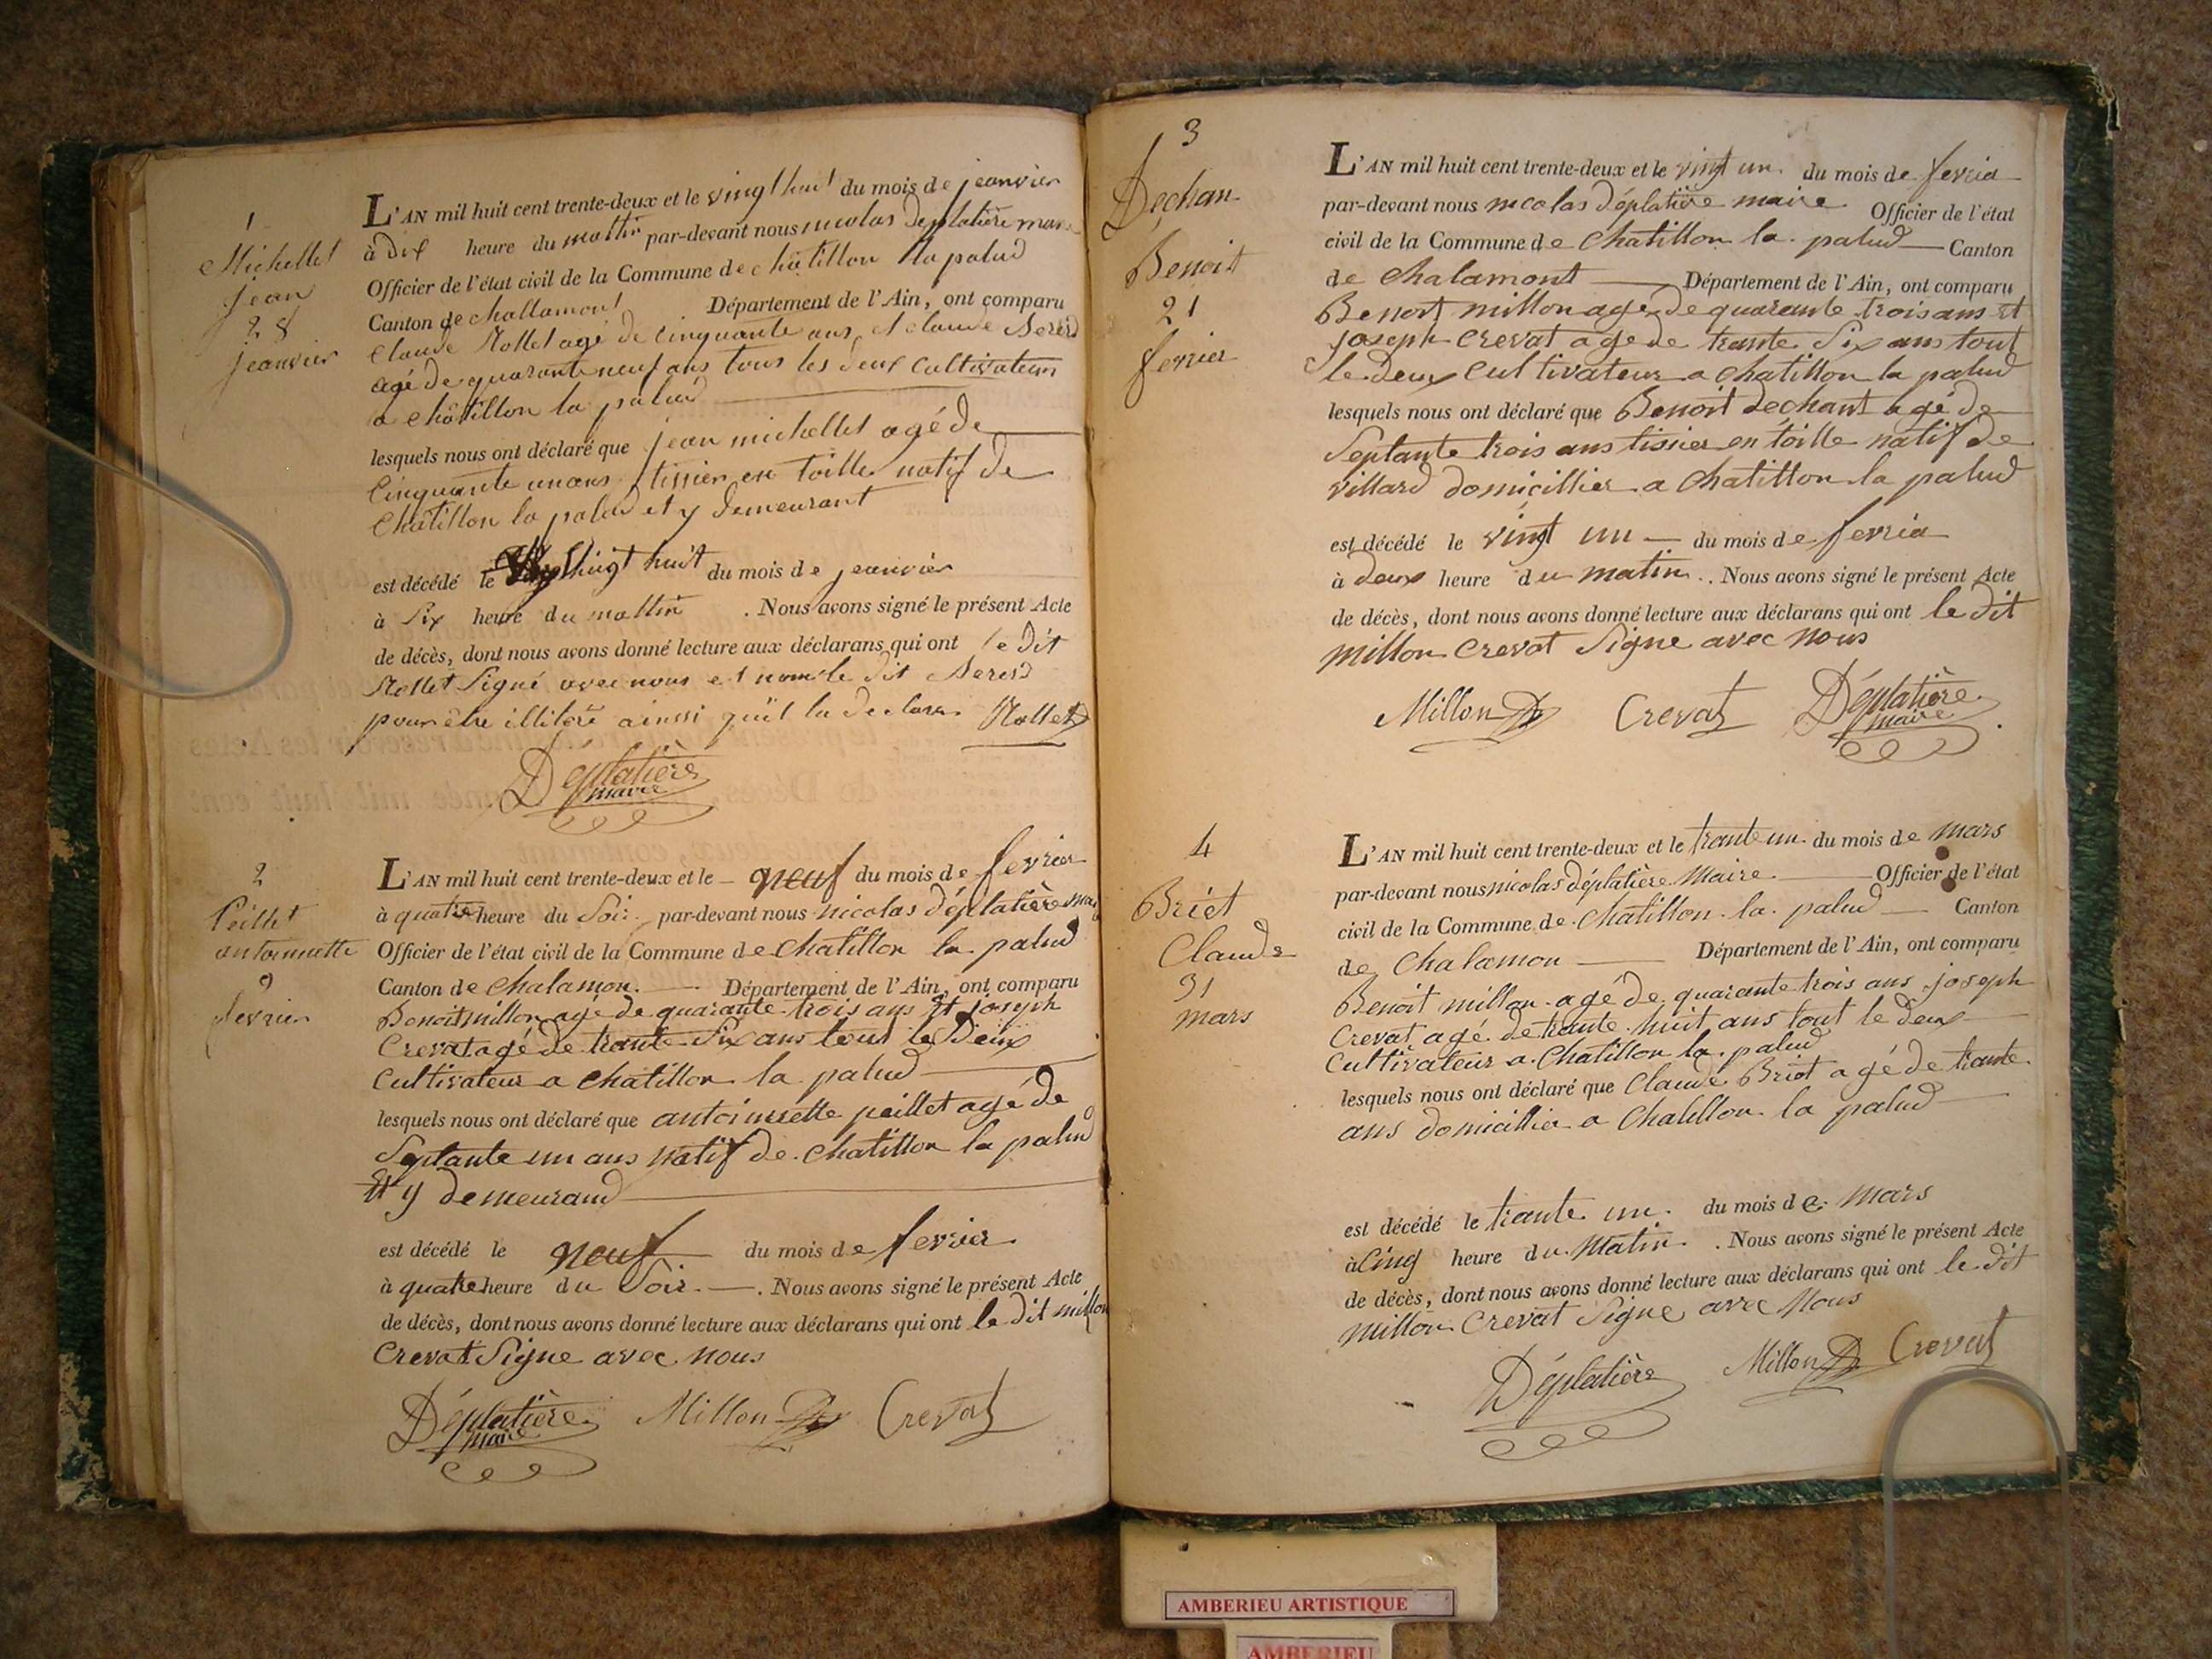 1
Michellet
jean
28
jeanvier
L'AN mil huit cent trente-deux et le vingt huit du mois de jeanvier
à dix heure du mattin par-devant nous nicolas deplatière maire
Officier de l'état civil de la Commune de châtillon la palud
Canton de challamont Département de l'Ain, ont comparu
claude Mollet agé de cinquante ans et claude
agé de quarante neuf ans tous les deux cultivateurs
a châtillon la palud
lesquels nous ont déclaré que jean michellet agé de
cinquante un ans tissier en toille natif de
châtillon la palud et y demeurant
est décédé le vingt huit du mois de jeanvier
à six heure du mattin . Nous avons signé le présent Acte
de décès, dont nous avons donné lecture aux déclarans qui ont le dit
Mollet Signé avec nous et non le dit
pour être illiteré ainssi qu'il la declare Mollet
Déplatière
maire
2
Peillet
antoinnette
9
fevrier
L'AN mil huit cent trente-deux et le neuf du mois de fevrier
à quatre heure du Soir par-devant nous nicolas déplatière mai
Officier de l'état civil de la Commune de chatillon la palud
Canton de chalamon. Département de l'Ain, ont comparu
Benoit millon agé de quarante trois ans Et joseph
Crevat agé de trante Six ans tout le deux
cultivateur a chatillon la palud
lesquels nous ont déclaré que antoinette peillet agé de
Septante un ans natif de chatillon la palud
Et y demeurand
est décédé le neuf du mois de fevrier
à quatre heure du Soir. . Nous avons signé le présent Acte
de décès, dont nous avons donné lecture aux déclarans qui ont le dit millon
Crevat Signe avec nous
Déplatière Millon Crevat
maire
3
Dechan
Benoit
21
fevrier
L'AN mil huit cent trente-deux et le vingt un du mois de fevria
par-devant nous nicolas déplatière maire Officier de l'état
civil de la Commune de chatillon la palud Canton
de chalamont Département de l'Ain, ont comparu
Benoit millon age de quarante trois ans Et
joseph crevat age de trante Six ans tout
le deux cultivateur a chatillon la palud
lesquels nous ont déclaré que Benoit dechant agé de
Septante trois ans tissier en toille natif de
villard domicillier a chatillon la palud
est décédé le vingt un du mois de fevria
à deux heure du matin . Nous avons signé le présent Acte
de décès, dont nous avons donné lecture aux déclarans qui ont le dit
millon crevat Signe avec nous
Millon Crevat Déplatière
maire
4
Briet
Claude
31
mars
L'AN mil huit cent trente-deux et le trante un du mois de mars
par-devant nous nicolas déplatière Maire Officier de l'état
civil de la Commune de chatillon la palud Canton
de chalamon Département de l'Ain, ont comparu
Benoit millon agé de quarante trois ans joseph
Crevat agé de trante huit ans tout le deux
cultivateur a chatillon la palud
lesquels nous ont déclaré que claude Briot agé de trante
ans domicillier a chatillon la palud
est décédé le trante un du mois de mars
à cinq heure du matin . Nous avons signé le présent Acte
de décès, dont nous avons donné lecture aux déclarans qui ont le dit
millon Crevat Signe avec nous
Déplatière Millon Crevat
AMBERIEU ARTISTIQUE
AMBERIEU